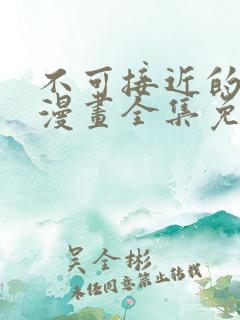 不可接近的
漫畫全集免
吴全彬
未经同意禁止转载